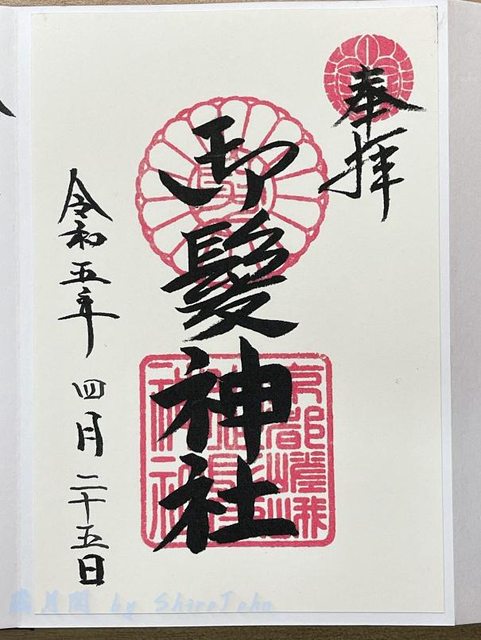 奉拝
御髪神社
京都嵯峨
令和五年 四月二十五日
by ShiroToho